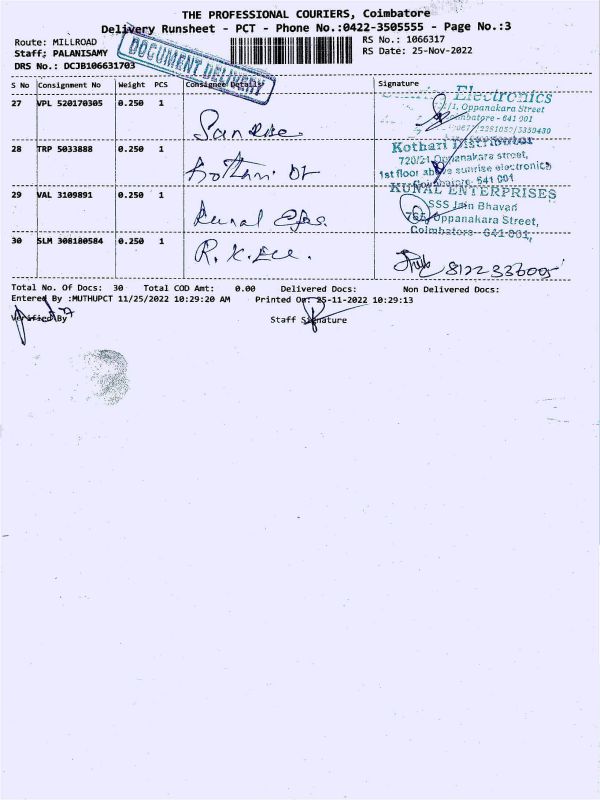 THE PROFESSIONAL COURIERS, Coimbatore
Delivery Runsheet - PCT - Phone No.:0422-3505555 - Page No.:3
Route: MILLROAD
RS No.: 1066317
Staff: PALANISAMY
RS Date: 25-Nov-2022
DRS No.: DCJB106631703
DOCUMENT DELIVERY
S No Consignment No Weight PCS Consignee Details Signature
27 VPL 520170305 0.250 1
Sunrise
Electronics
/1, Oppanakara Street
Coimbatore - 641 001
28 TRP 5033888 0.250 1
Kothari Dt
Kothari Distributor
720/21 Oppanakara street,
1st floor above sunrise electronics
Coimbatore. 641 001
29 VAL 3109891 0.250 1
Kunal
KUNAL ENTERPRISES
SSS Jain Bhavan
765, Oppanakara Street,
Coimbatore - 641 001,
30 SLM 308180584 0.250 1
R. K. Ele.
8122336005
Total No. Of Docs: 30 Total COD Amt: 0.00 Delivered Docs: Non Delivered Docs:
Entered By :MUTHUPCT 11/25/2022 10:29:20 AM Printed On: 25-11-2022 10:29:13
Verified By
Staff Signature